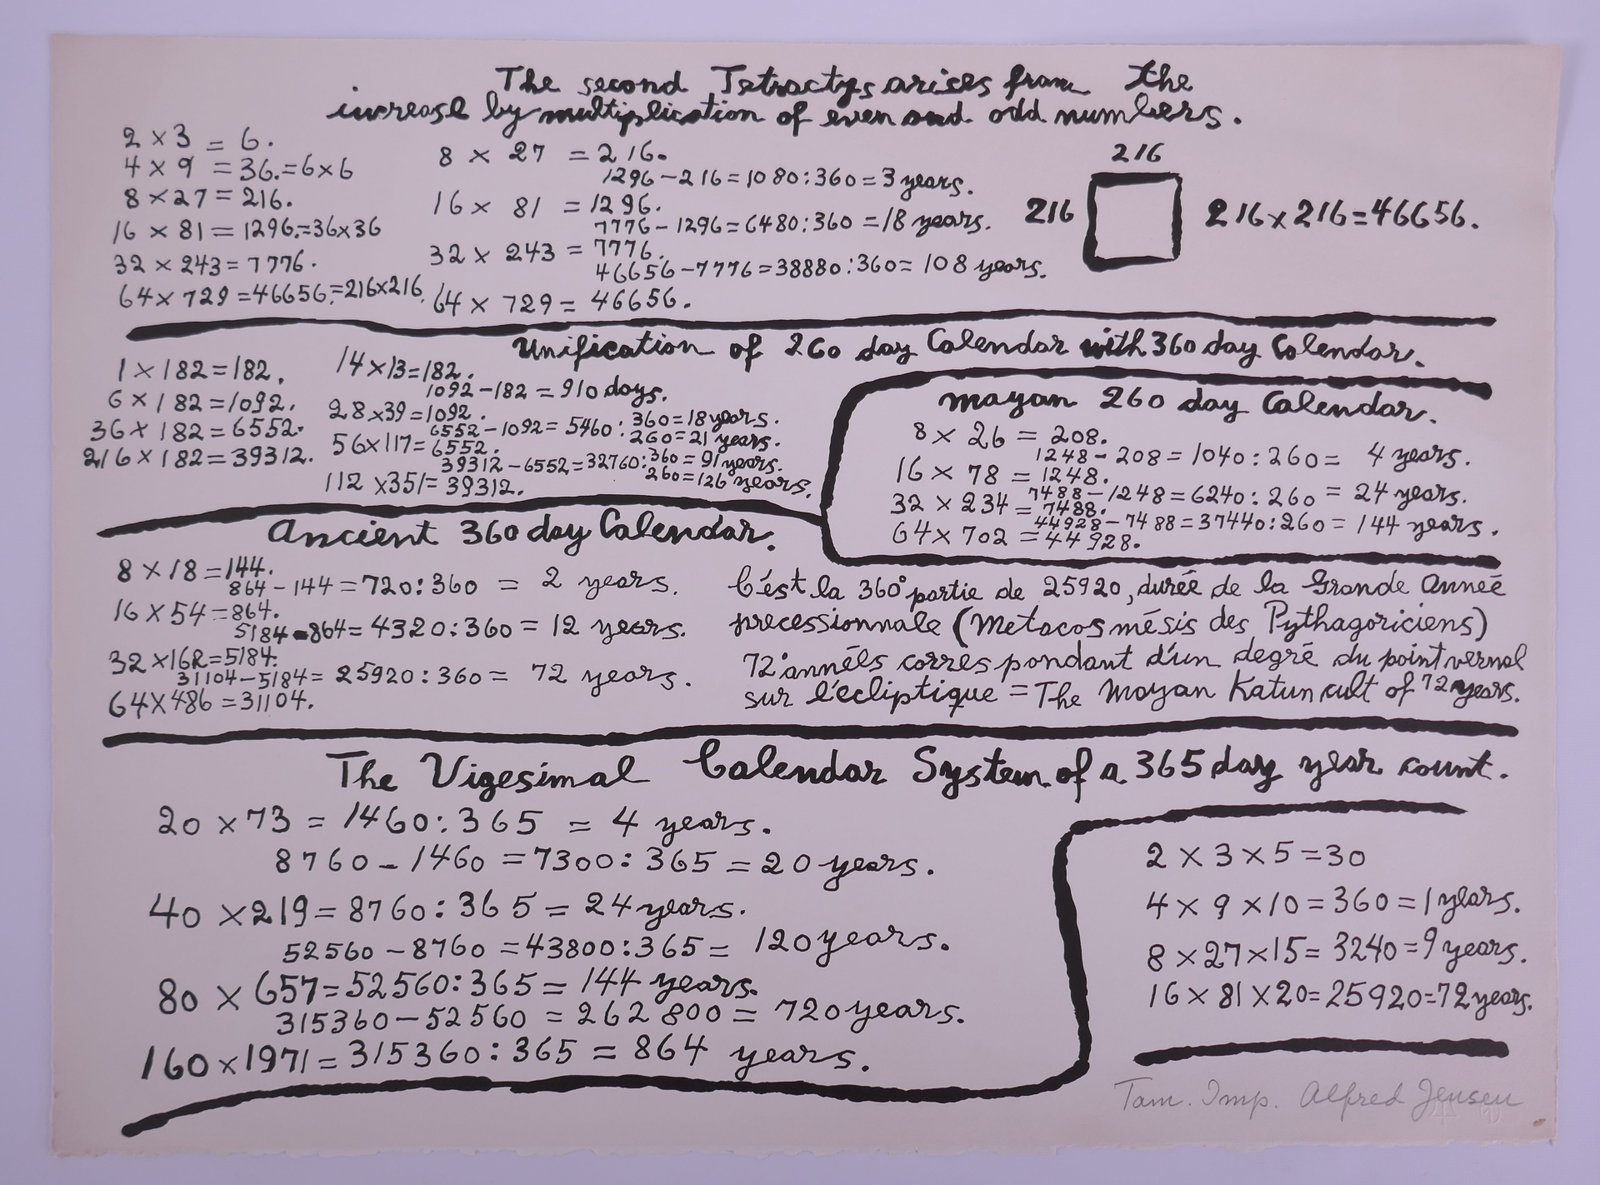 The second Tetractys arises from the
increase by multiplication of even and odd numbers.
2 × 3 = 6.
4 × 9 = 36.=6×6
8 × 27 = 216.
16 × 81 = 1296.=36×36
32 × 243 = 7776.
64 × 729 = 46656.=216×216
8 × 27 = 216.
1296 - 216 = 1080:360 = 3 years.
16 × 81 = 1296.
7776 - 1296 = 6480:360 = 18 years.
32 × 243 = 7776.
46656 - 7776 = 38880:360 = 108 years.
64 × 729 = 46656.
216
216
216×216=46656.
Unification of 260 day Calendar with 360 day Calendar.
1 × 182 = 182.
6 × 182 = 1092.
36 × 182 = 6552.
216 × 182 = 39312.
14 × 13 = 182.
1092 - 182 = 910 days.
28 × 39 = 1092.
6552 - 1092 = 5460: 360 = 18 years.
260 = 21 years.
56 × 117 = 6552.
39312 - 6552 = 32760: 360 = 91 years.
260 = 126 years.
112 × 351 = 39312.
Mayan 260 day Calendar.
8 × 26 = 208.
1248 - 208 = 1040:260 = 4 years.
16 × 78 = 1248.
7488 - 1248 = 6240:260 = 24 years.
32 × 234 = 7488.
44928 - 7488 = 37440:260 = 144 years.
64 × 702 = 44928.
Ancient 360 day Calendar.
8 × 18 = 144.
864 - 144 = 720:360 = 2 years.
16 × 54 = 864.
5184 - 864 = 4320:360 = 12 years.
32 × 162 = 5184.
31104 - 5184 = 25920:360 = 72 years.
64 × 486 = 31104.
C'ést la 360° partie de 25920, durée de la Grande Anneé
precessionnale (Metacosmésis des Pythagoriciens)
72 annéls corréspondant d'un degré du point vernal
sur l'écliptique = The Mayan Katun cult of 72 years.
The Vigesimal Calendar System of a 365 day year count.
20 × 73 = 1460:365 = 4 years.
8760 - 1460 = 7300:365 = 20 years.
40 × 219 = 8760:365 = 24 years.
52560 - 8760 = 43800:365 = 120 years.
80 × 657 = 52560:365 = 144 years.
315360 - 52560 = 262800 = 720 years.
160 × 1971 = 315360:365 = 864 years.
2 × 3 × 5 = 30
4 × 9 × 10 = 360 = 1 years.
8 × 27 × 15 = 3240 = 9 years.
16 × 81 × 20 = 25920 = 72 years.
Tam. Imp. Alfred Jensen